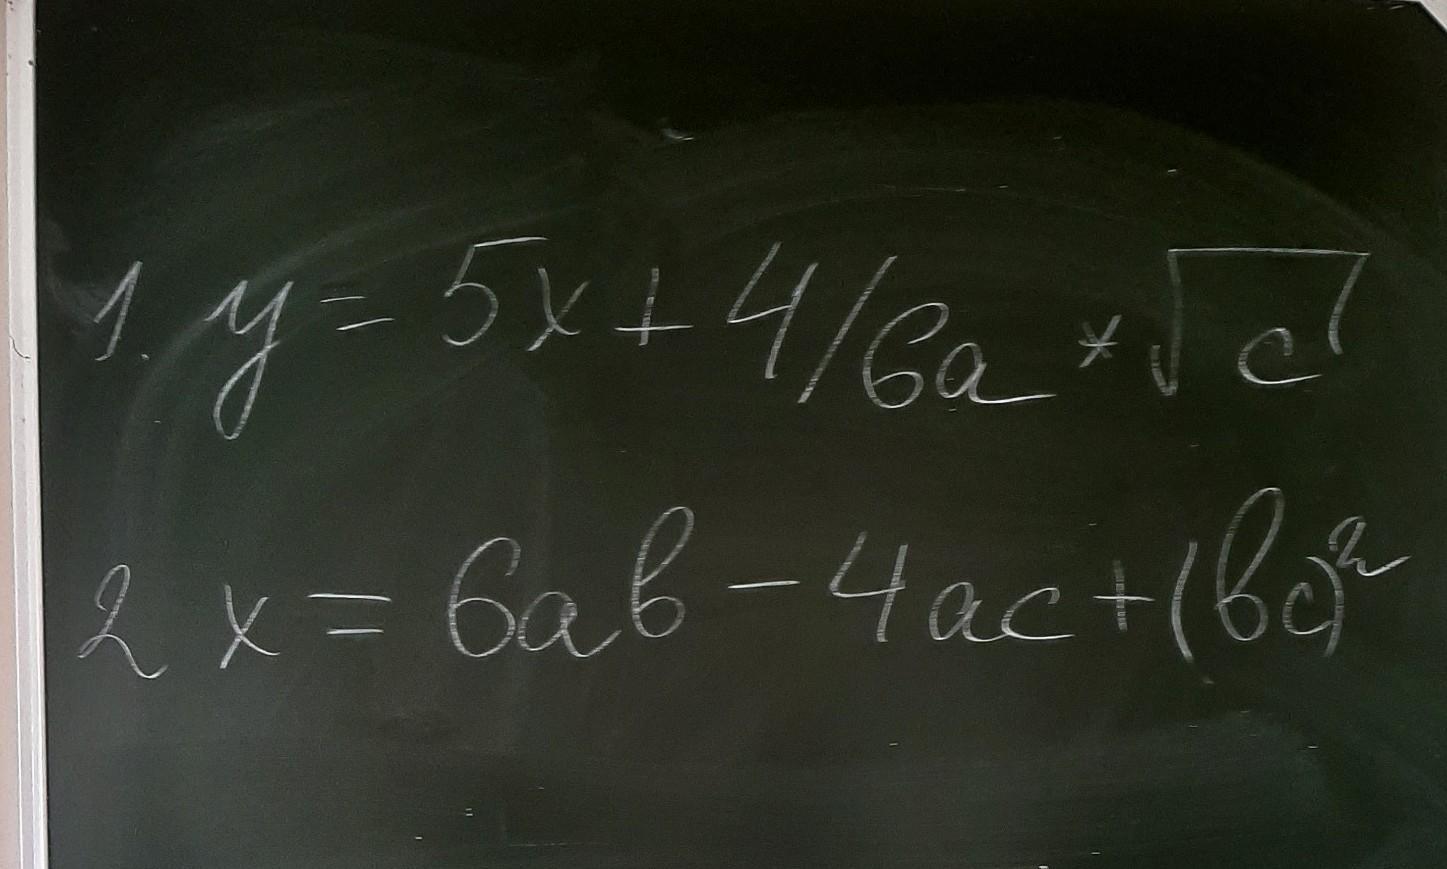 1. y = 5x + 4/6a * √c
2 x = 6ab - 4ac + (bc)²